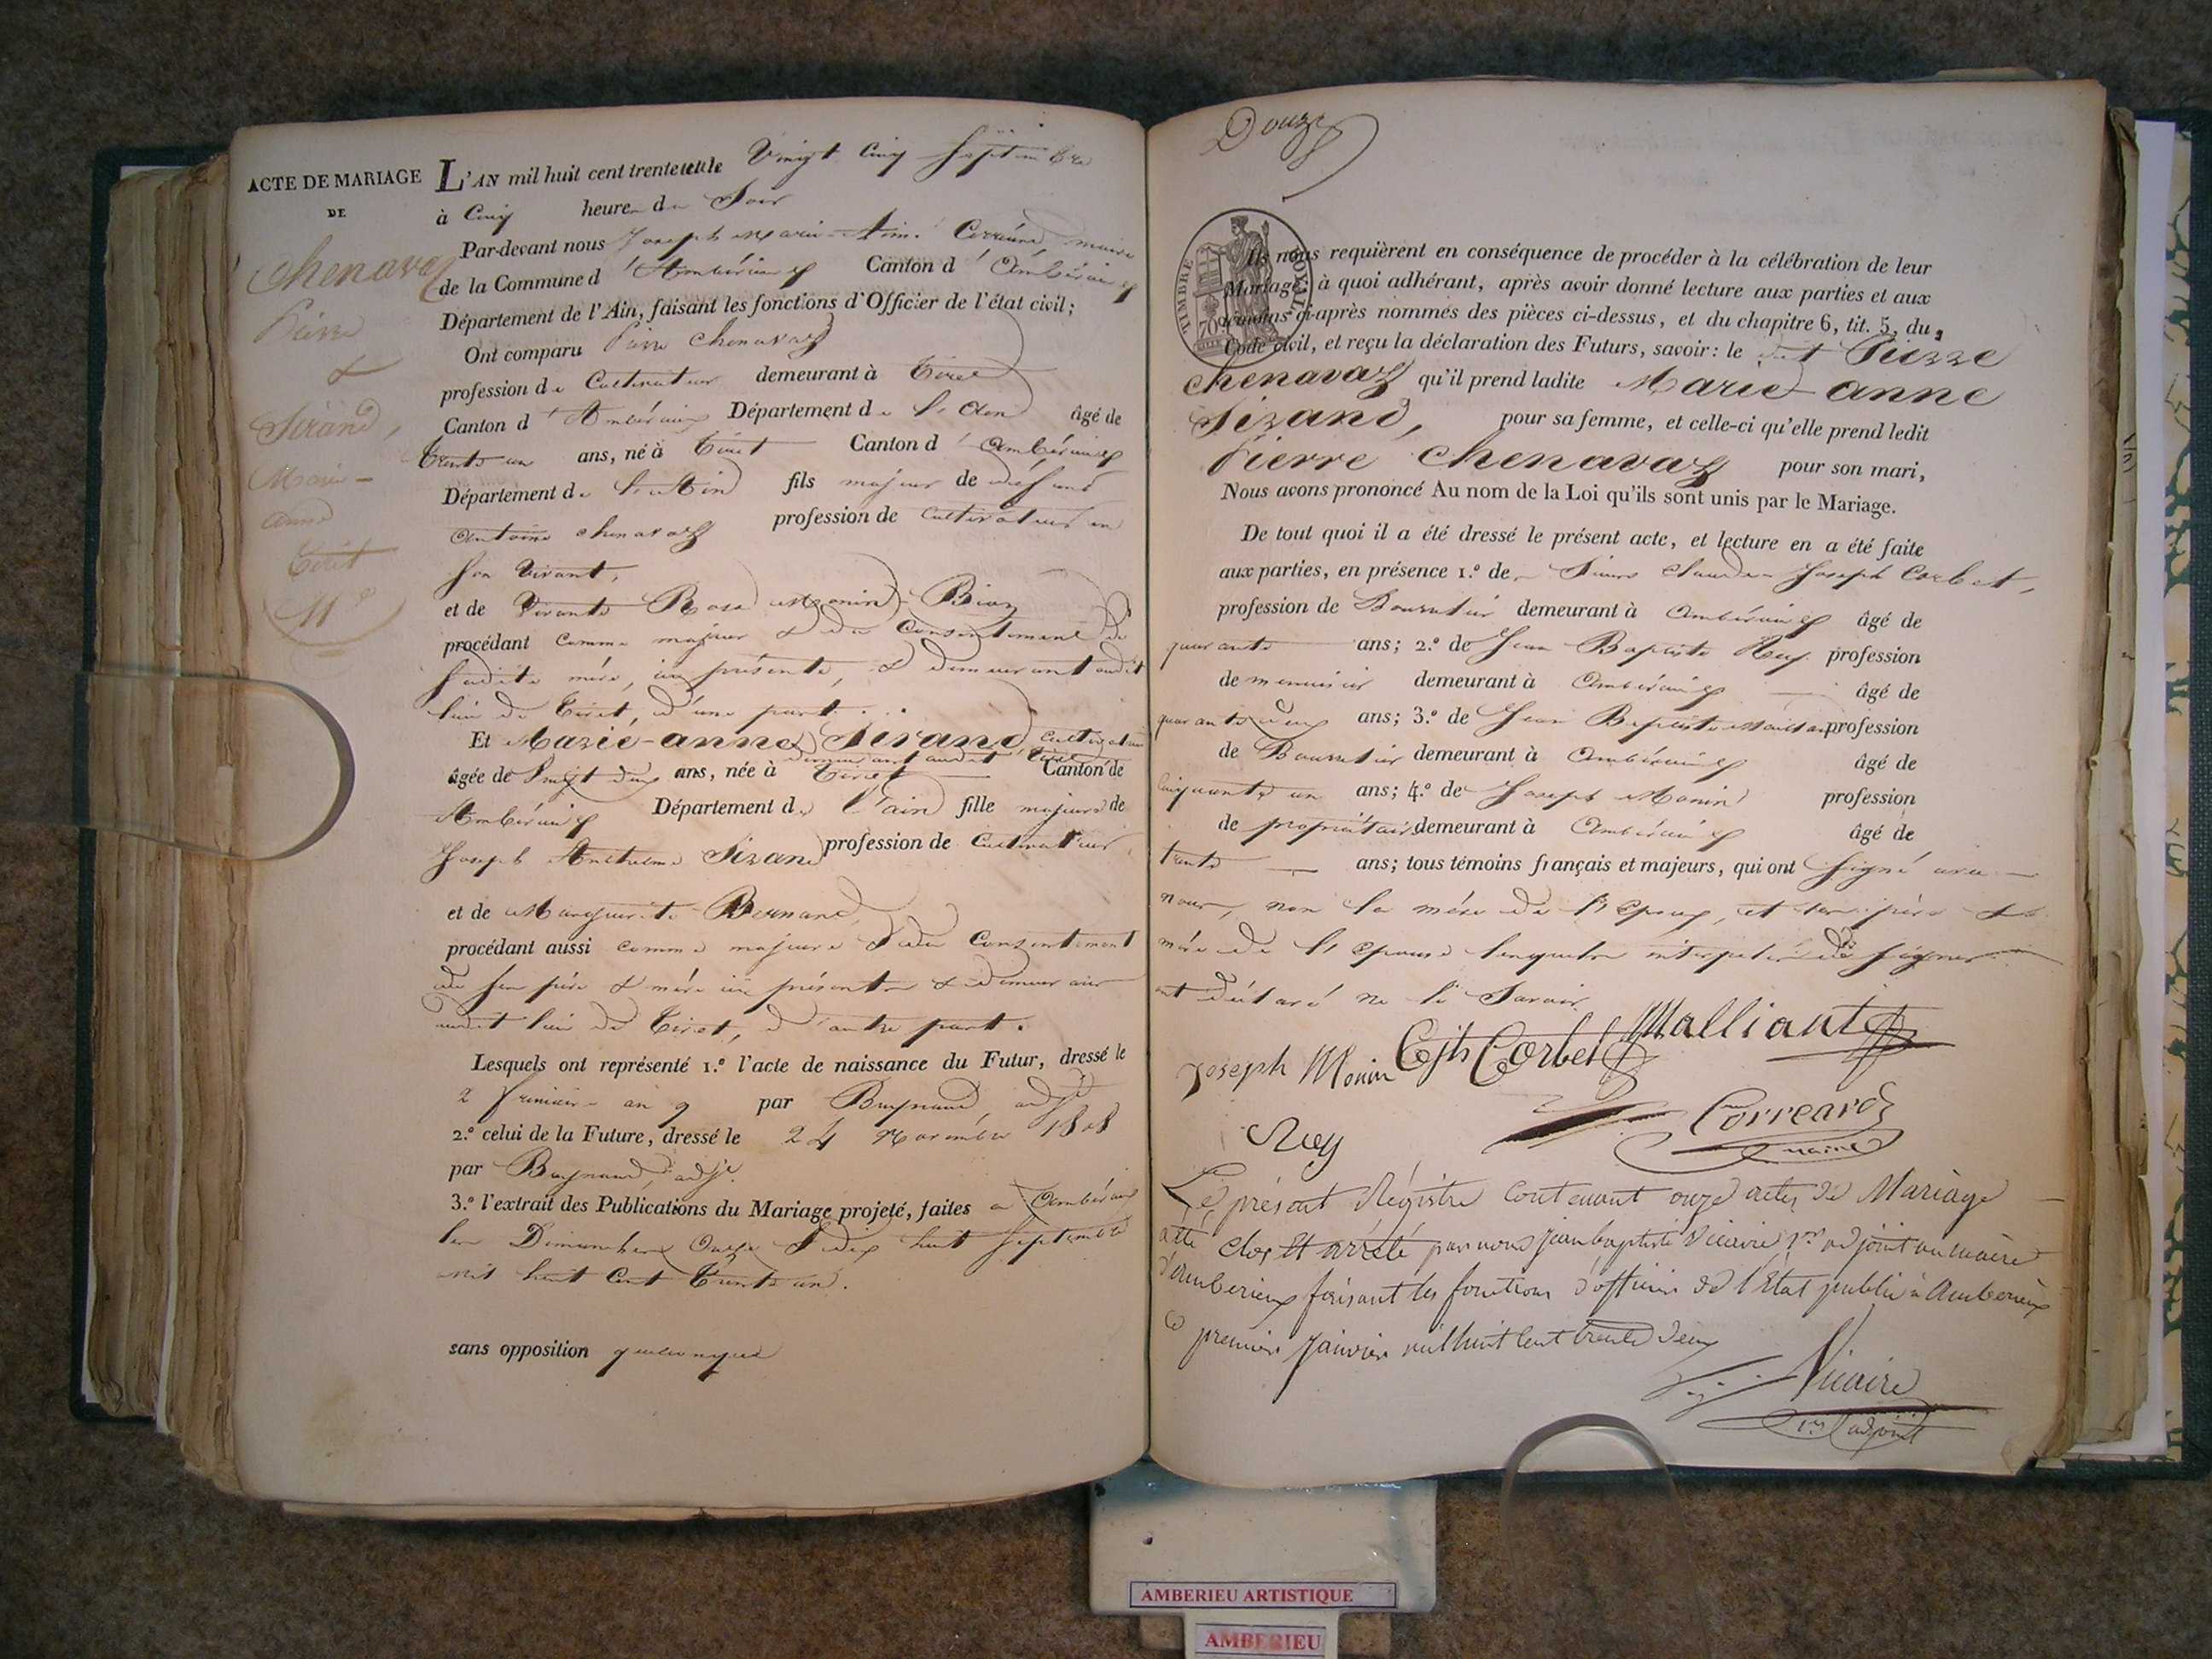 ACTE DE MARIAGE
DE
Chenavaz
Pierre
&
Sirand,
Marie-
anne
Tiret
11e
L'AN mil huit cent trente et un le Vingt Cinq Septembre
à Cinq heures du Soir
Par-devant nous Joseph Marie Aimé Corréard, maire
de la Commune d'Ambérieux Canton d'Ambérieux
Département de l'Ain, faisant les fonctions d'Officier de l'état civil;
Ont comparu Pierre Chenavaz
profession de Cultivateur demeurant à Tiret
Canton d'Ambérieux Département de l'Ain âgé de
trente un ans, né à Tiret Canton d'Ambérieux
Département de l'Ain fils majeur de défunt
Antoine Chenavaz profession de Cultivateur en
son vivant,
et de Vivante Rose Monin-Biaz
procédant comme majeur & du Consentement de
sadite mère, ici présente, & demeurant audit
lieu de Tiret, d'une part...
Et Marie-anne Sirand Cultivatrice
demeurant audit Tiret
âgée de Vingt deux ans, née à Tiret Canton de
Ambérieux Département de l'ain fille majeure de
Joseph Anthelme Sirand profession de Cultivateur,
et de Marguerite Bernard,
procédant aussi comme majeure & du Consentement
de ses père & mère ici présents & demeurant
audit lieu de Tiret, d'autre part.
Lesquels ont représenté 1.º l'acte de naissance du Futur, dressé le
2 frimaire an 9 par Buynand, adjt
2.º celui de la Future, dressé le 24 Novembre 1808
par Buynand, adjt.
3.º l'extrait des Publications du Mariage projeté, faites à Ambérieux
les Dimanches Onze & dix huit Septembre
mil huit Cent trente un.
sans opposition quelconque
Douze
TIMBRE ROYAL
70c
Ils nous requièrent en conséquence de procéder à la célébration de leur
Mariage, à quoi adhérant, après avoir donné lecture aux parties et aux
témoins ci-après nommés des pièces ci-dessus, et du chapitre 6, tit. 5, du
Code civil, et reçu la déclaration des Futurs, savoir: le dit Pierre
Chenavaz qu'il prend ladite Marie-anne
Sirand, pour sa femme, et celle-ci qu'elle prend ledit
Pierre Chenavaz pour son mari,
Nous avons prononcé Au nom de la Loi qu'ils sont unis par le Mariage.
De tout quoi il a été dressé le présent acte, et lecture en a été faite
aux parties, en présence 1.º de Sieurs Claude Joseph Corbet,
profession de Bourrelier demeurant à Ambérieux âgé de
quarante ans; 2.º de Jean Baptiste Rey profession
de menuisier demeurant à Ambérieux âgé de
quarante deux ans; 3.º de Jean Baptiste profession
de Bourrelier demeurant à Ambérieux âgé de
Cinquante un ans; 4.º de Joseph Monin profession
de propriétaire demeurant à Ambérieux âgé de
trente ans; tous témoins français et majeurs, qui ont signé avec
nous, non la mère de l'Epoux, et les père &
mère de l'Epouse lesquels interpellés de signer
ont déclaré ne le Savoir.
Joseph Monin Cjh Corbet Malliant
Correard
maire
Rey
Le présent Régistre Contenant onze actes de Mariage
a été clos Et arrêté par nous jean baptiste Vicaire 1er adjoint au maire
d'amberieux faisant les fonctions d'officier de l'Etat public à Amberieux
Ce premier Janvier mil huit Cent trente deux
Vicaire
1er adjoint
AMBERIEU ARTISTIQUE
AMBERIEU